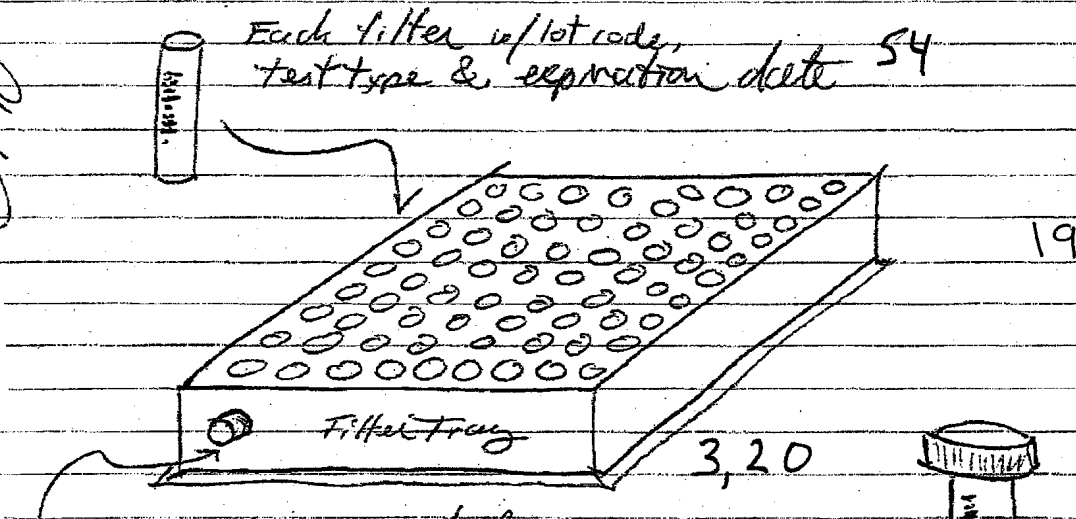 Each filter w/lot code,
test type & expiration date 54
19
Filter Tray
3,20